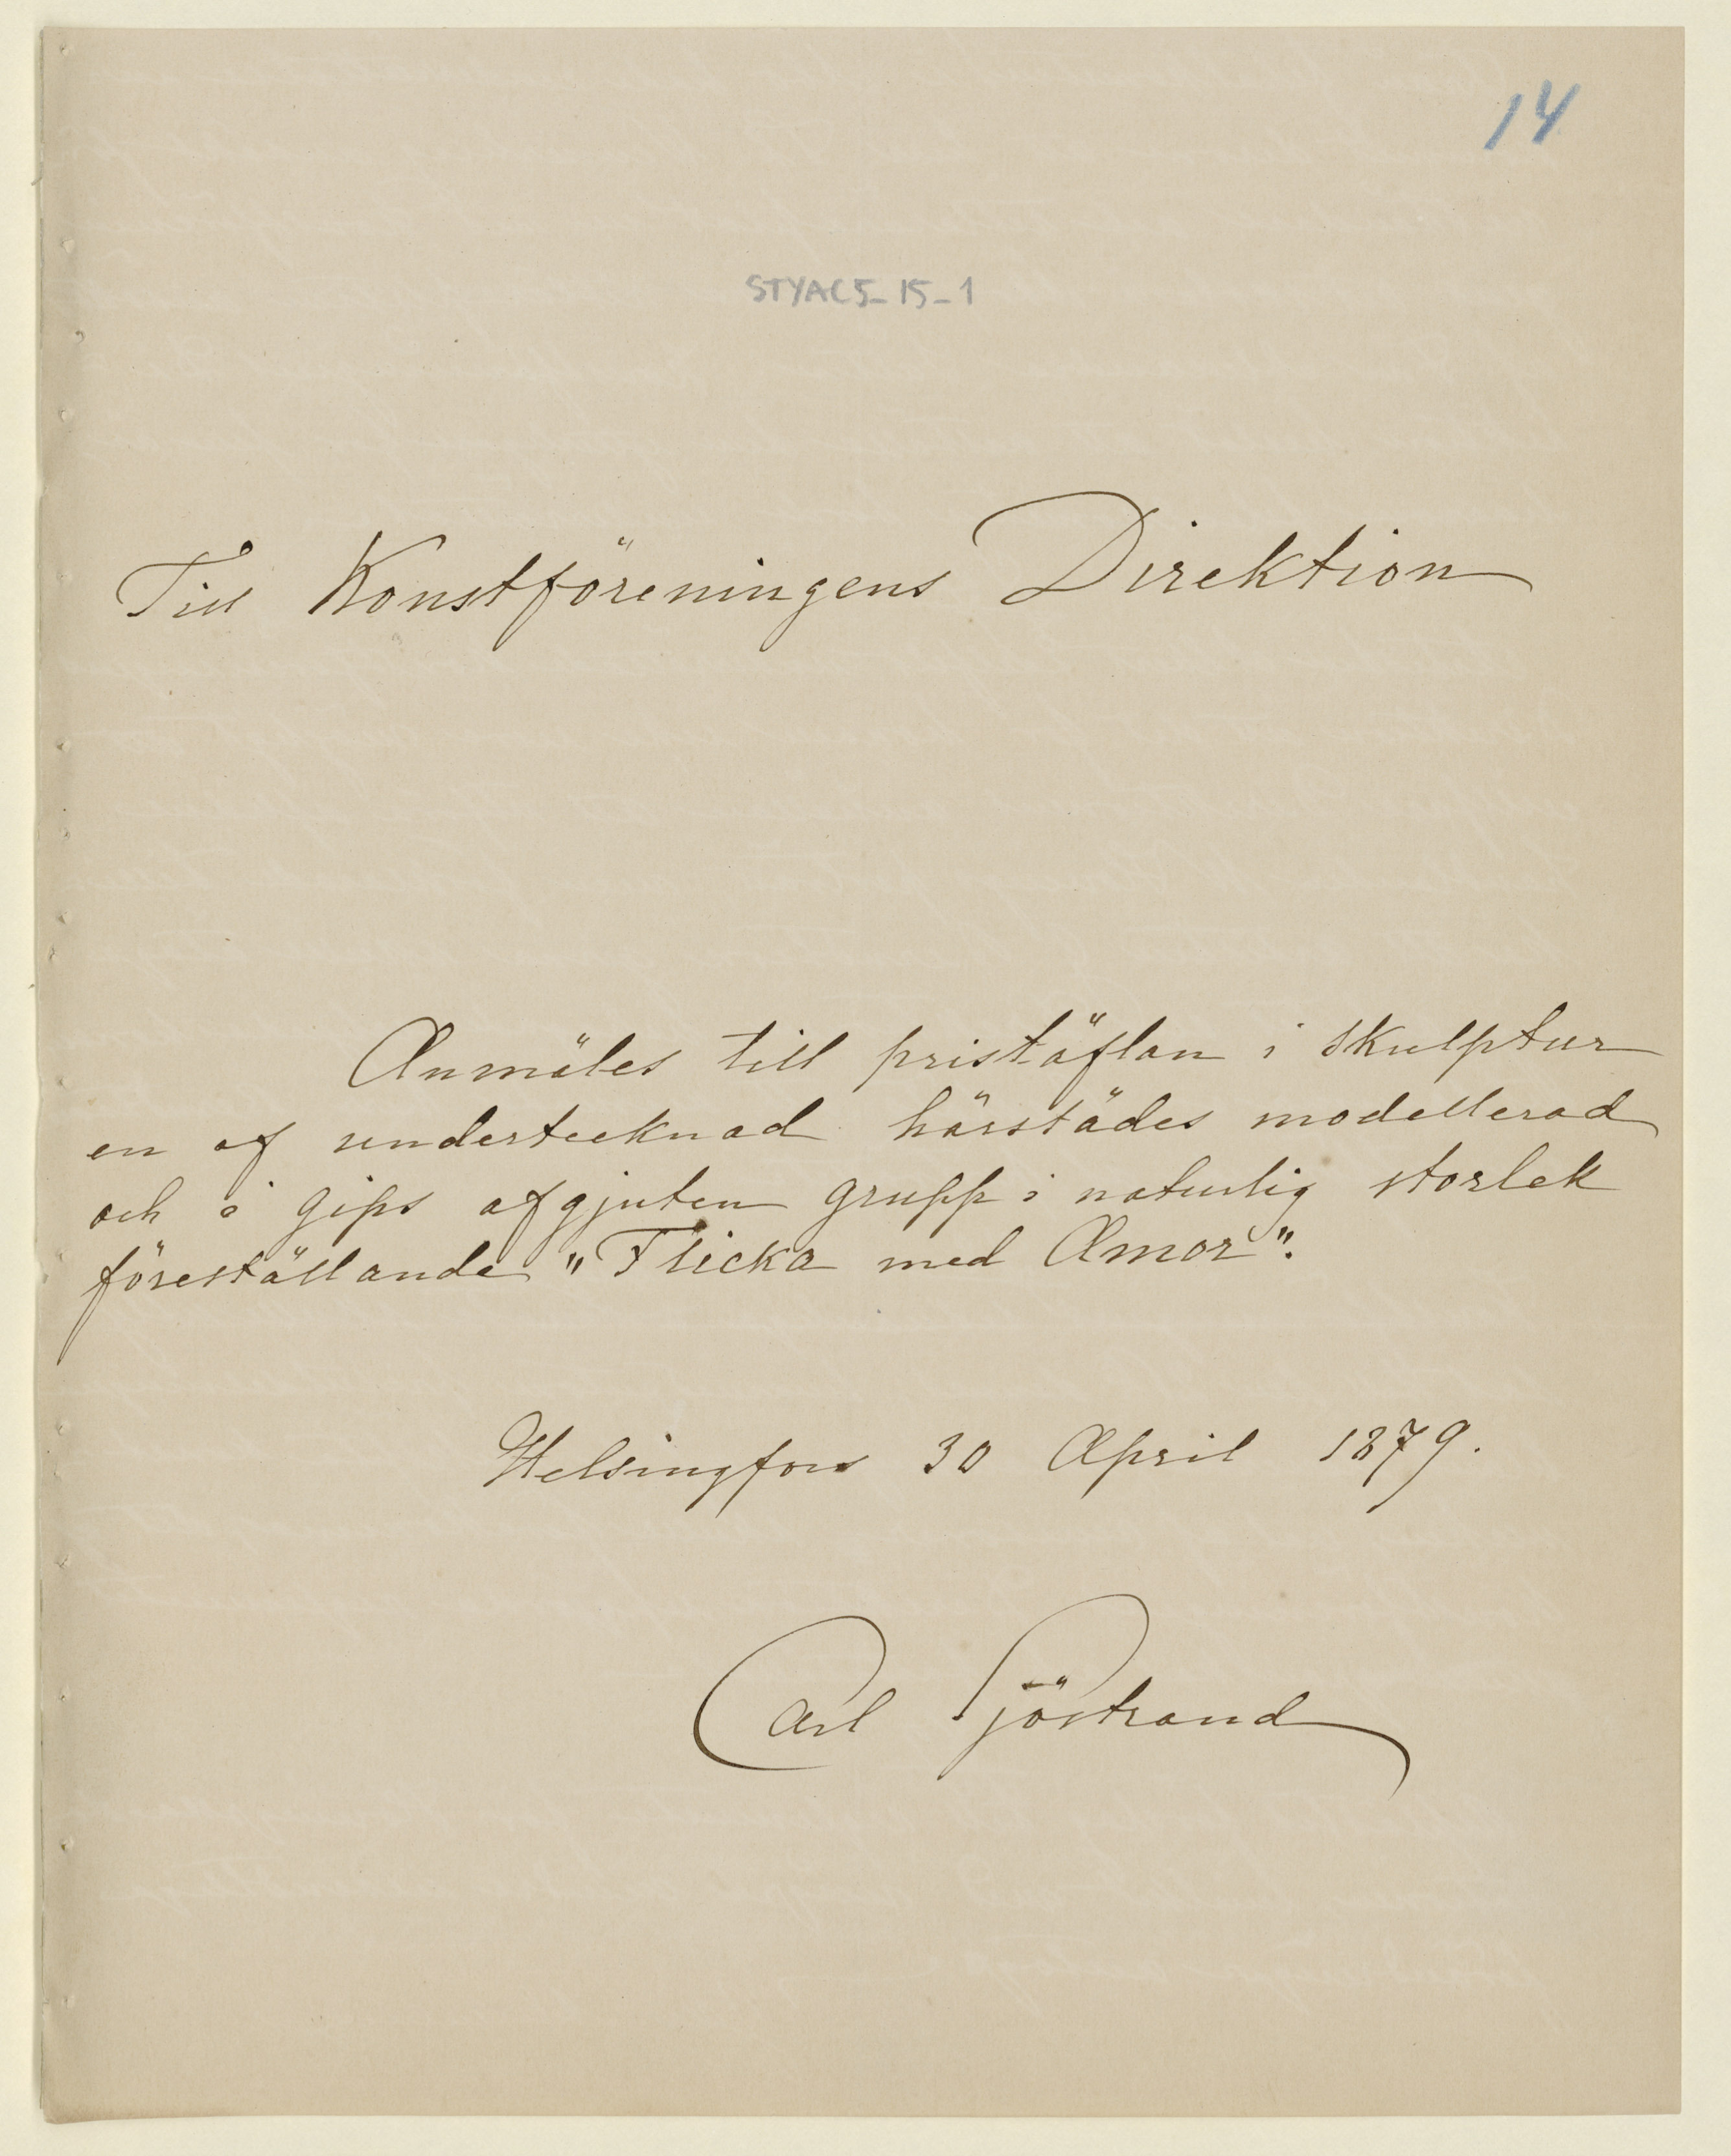 14
STYAC5_15_1
Till Konstföreningens Direktion
Anmäles till pristäflan i Skulptur
en af undertecknad härstädes modellerad
och i gips afgjuten grupp i naturlig storlek
föreställande "Flicka med Amor".
Helsingfors 30 April 1879.
Carl Sjöstrand